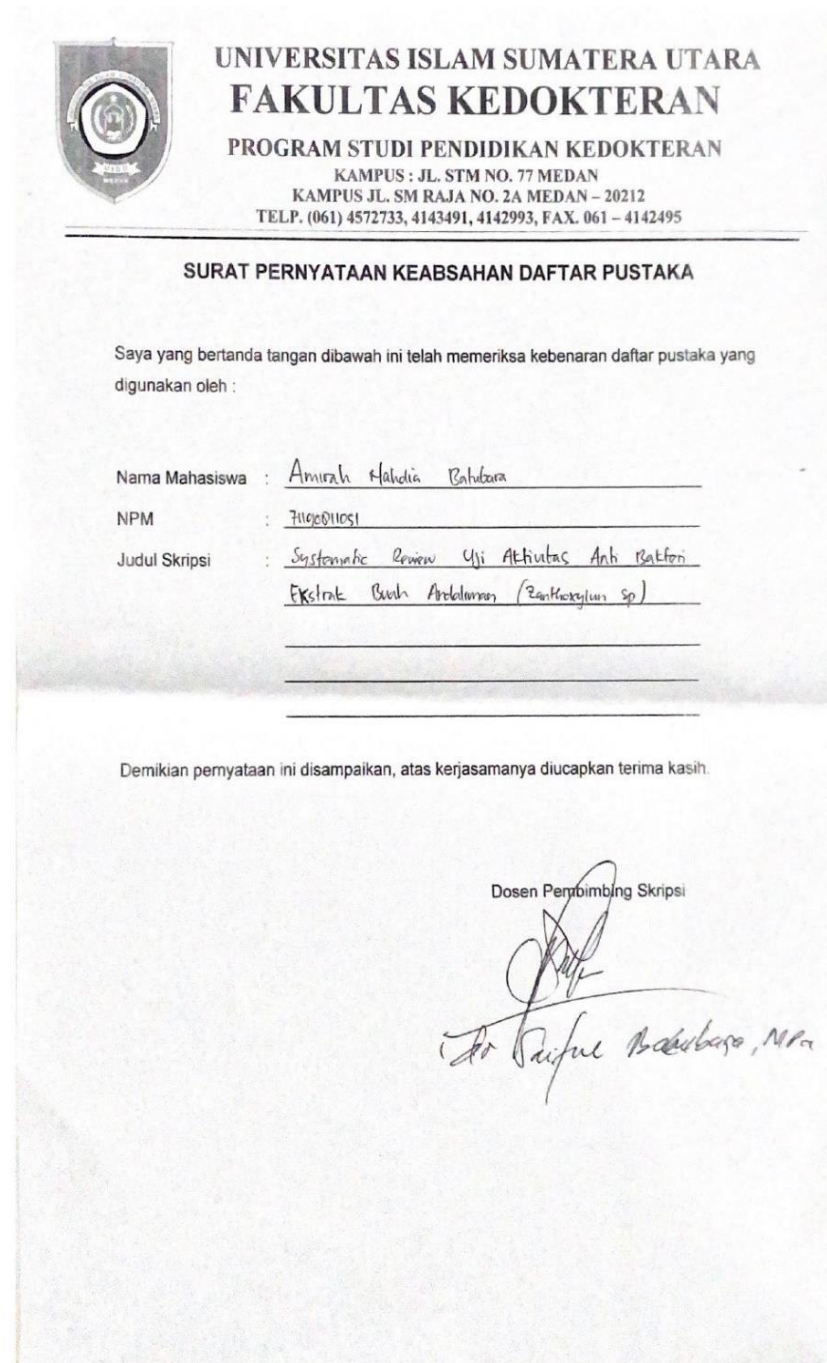 UNIVERSITAS ISLAM SUMATERA UTARA
FAKULTAS KEDOKTERAN
PROGRAM STUDI PENDIDIKAN KEDOKTERAN
KAMPUS : JL. STM NO. 77 MEDAN
KAMPUS JL. SM RAJA NO. 2A MEDAN – 20212
TELP. (061) 4572733, 4143491, 4142993, FAX. 061 – 4142495
SURAT PERNYATAAN KEABSAHAN DAFTAR PUSTAKA
Saya yang bertanda tangan dibawah ini telah memeriksa kebenaran daftar pustaka yang
digunakan oleh :
Nama Mahasiswa : Amirah Mahdia Batubara
NPM :
Judul Skripsi : Systematic Review Uji Aktivitas Anti Bakteri
Ekstrak Buah Andaliman (Zanthoxylum sp)
Demikian pernyataan ini disampaikan, atas kerjasamanya diucapkan terima kasih.
Dosen Pembimbing Skripsi
Saiful Batubara,